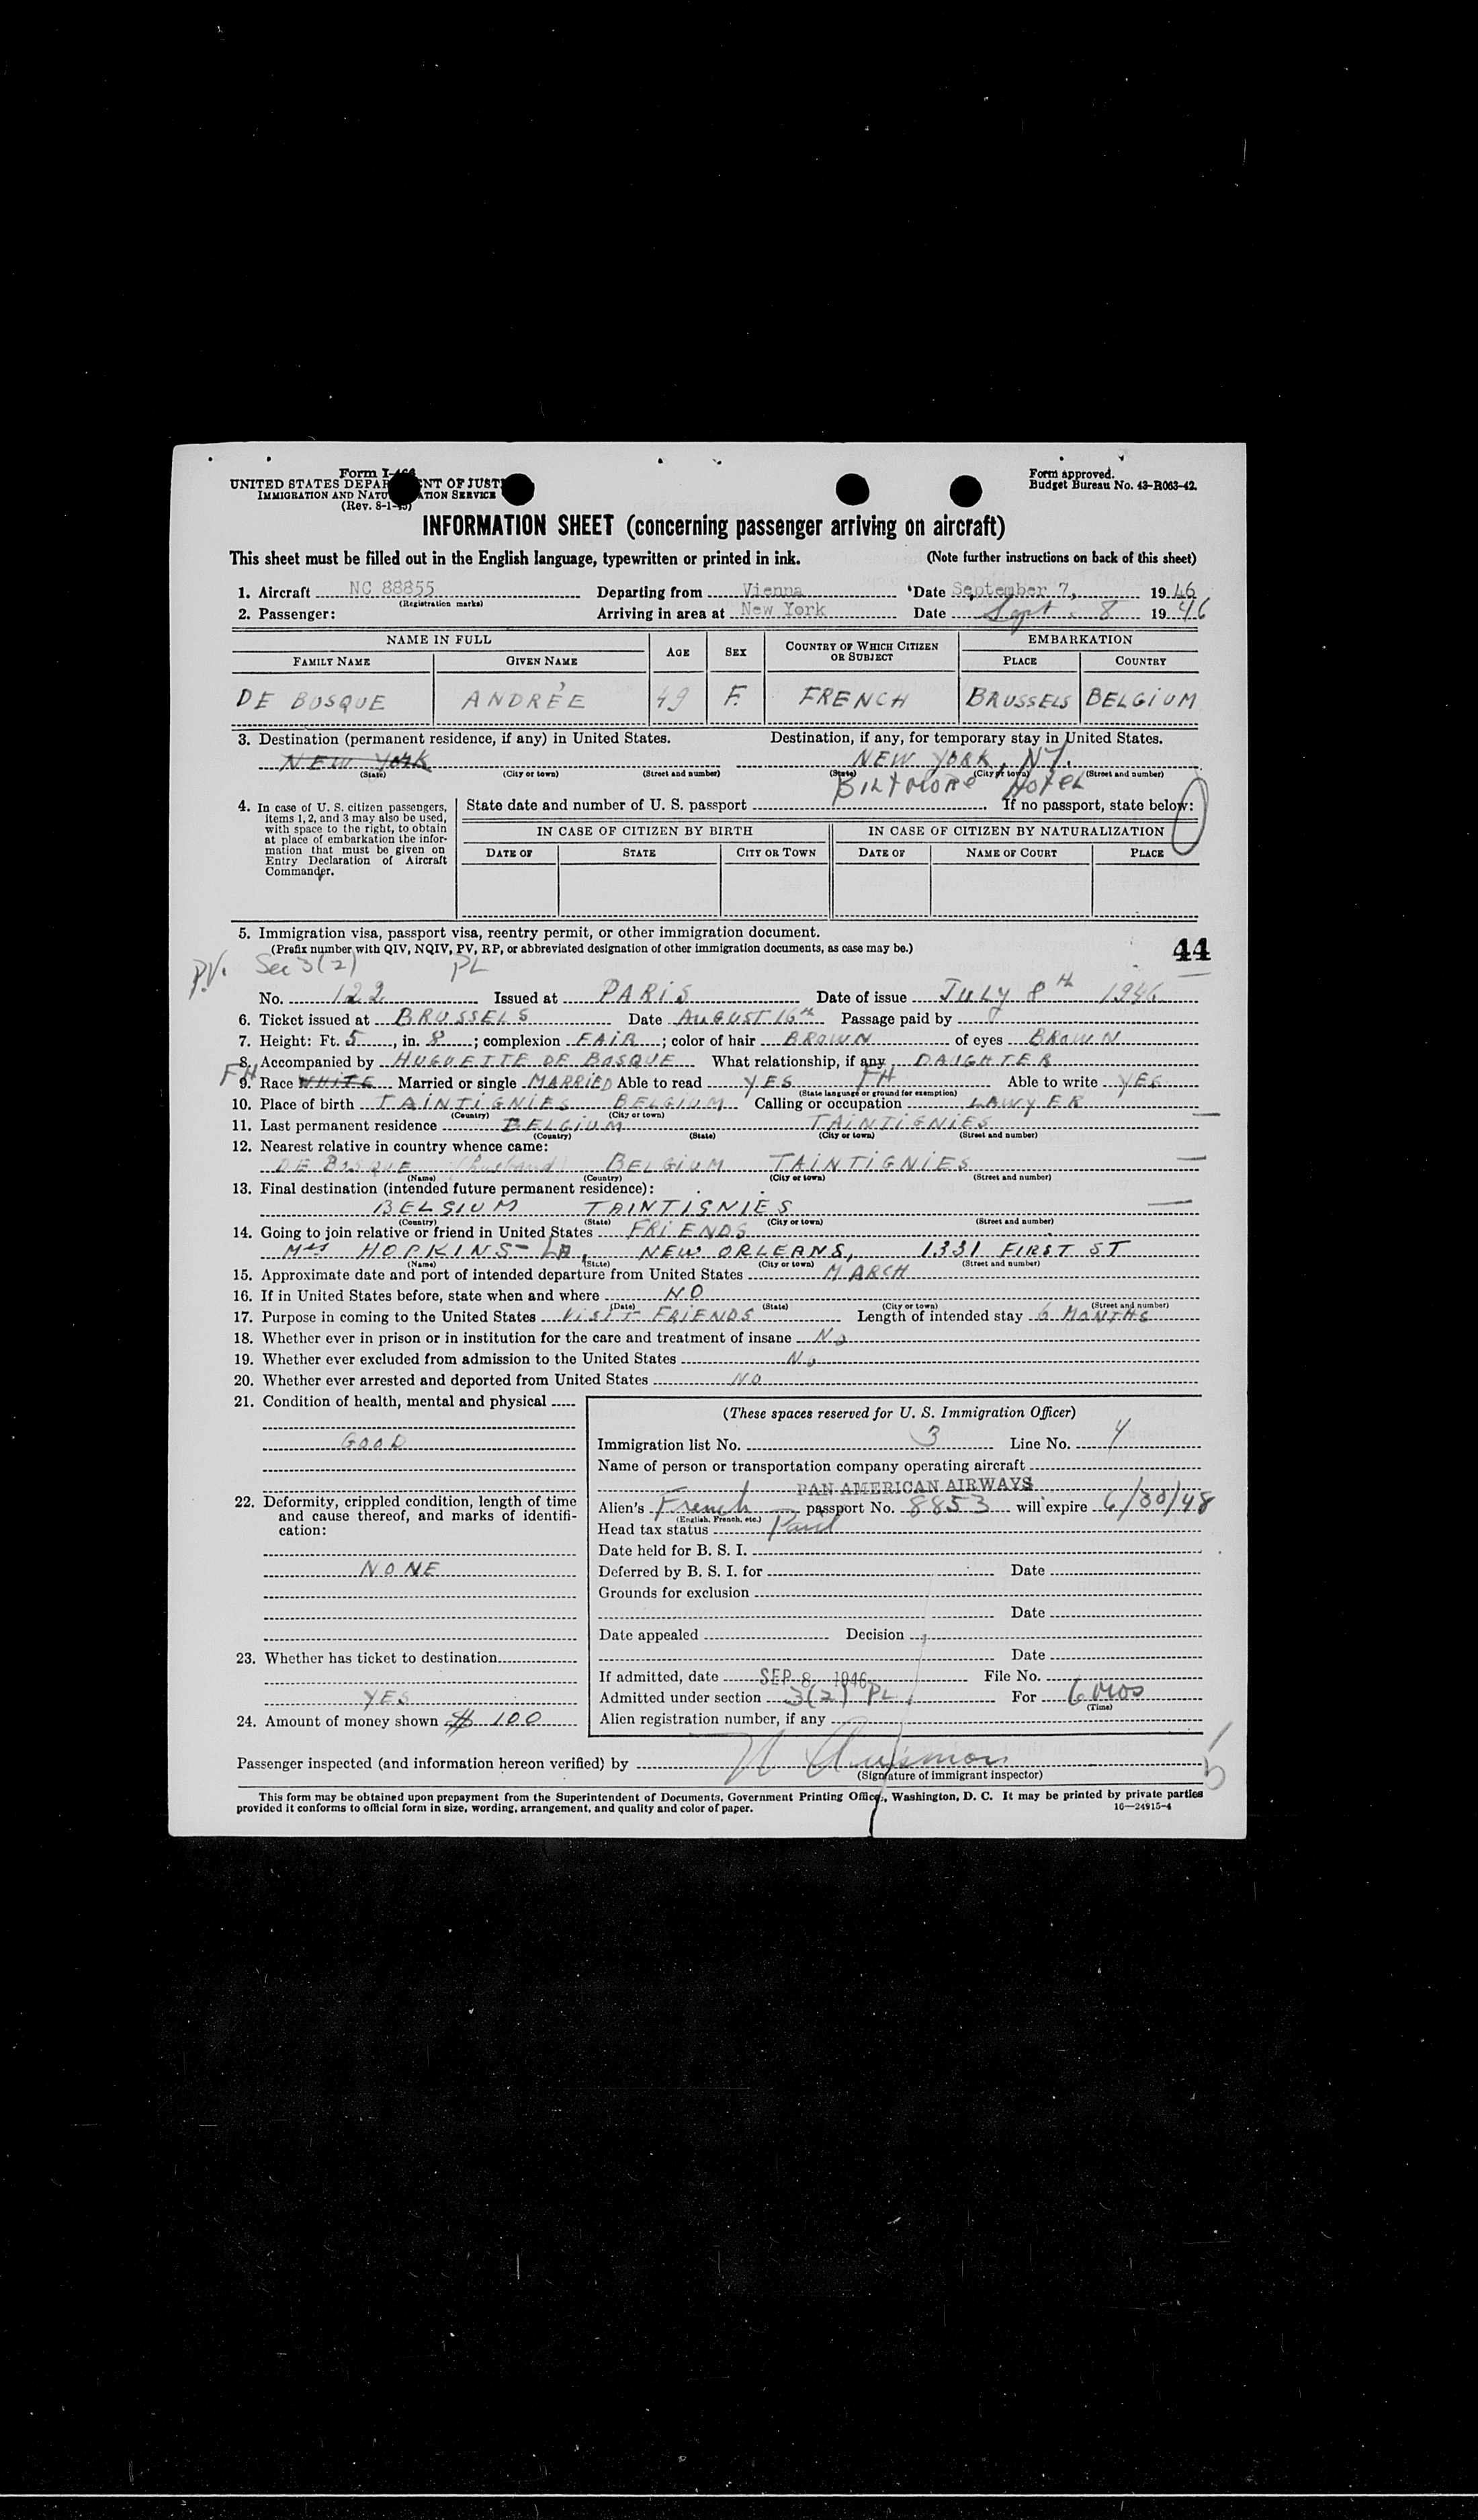 Form I-466
UNITED STATES DEPARTMENT OF JUSTICE
IMMIGRATION AND NATURALIZATION SERVICE
(Rev. 8-1-45)
Form approved.
Budget Bureau No. 43-R063-42.
INFORMATION SHEET (concerning passenger arriving on aircraft)
This sheet must be filled out in the English language, typewritten or printed in ink. (Note further instructions on back of this sheet)
1. Aircraft NC 88855 Departing from Vienna Date September 7, 1946
(Registration marks)
2. Passenger: Arriving in area at New York Date Sept. 8 1946
NAME IN FULL AGE SEX COUNTRY OF WHICH CITIZEN OR SUBJECT EMBARKATION
FAMILY NAME GIVEN NAME PLACE COUNTRY
DE BOSQUE ANDRÉE 49 F. FRENCH BRUSSELS BELGIUM
3. Destination (permanent residence, if any) in United States. Destination, if any, for temporary stay in United States.
NEW YORK NEW YORK, NY.
(State) (City or town) (Street and number) (State) (City or town) (Street and number)
BILTMORE HOTEL
4. In case of U. S. citizen passengers, items 1, 2, and 3 may also be used, with space to the right, to obtain at place of embarkation the information that must be given on Entry Declaration of Aircraft Commander.
State date and number of U. S. passport If no passport, state below:
IN CASE OF CITIZEN BY BIRTH IN CASE OF CITIZEN BY NATURALIZATION
DATE OF STATE CITY OR TOWN DATE OF NAME OF COURT PLACE
5. Immigration visa, passport visa, reentry permit, or other immigration document.
(Prefix number with QIV, NQIV, PV, RP, or abbreviated designation of other immigration documents, as case may be.) 44
P.V. Sec 3(2) PL
No. 122 Issued at PARIS Date of issue JULY 8th 1946
6. Ticket issued at BRUSSELS Date AUGUST 16th Passage paid by
7. Height: Ft. 5, in. 8; complexion FAIR; color of hair BROWN of eyes BROWN
8. Accompanied by HUGUETTE DE BOSQUE What relationship, if any DAUGHTER
FH
9. Race WHITE Married or single MARRIED Able to read YES FH Able to write YES
(State language or ground for exemption)
10. Place of birth TAINTIGNIES BELGIUM Calling or occupation LAWYER
(Country) (City or town)
11. Last permanent residence BELGIUM TAINTIGNIES
(Country) (State) (City or town) (Street and number)
12. Nearest relative in country whence came:
DE BOSQUE (husband) BELGIUM TAINTIGNIES
(Name) (Country) (City or town) (Street and number)
13. Final destination (intended future permanent residence):
BELGIUM TAINTIGNIES
(Country) (State) (City or town) (Street and number)
14. Going to join relative or friend in United States FRIENDS
Mrs HOPKINS - LA, NEW ORLEANS, 1331 FIRST ST
(Name) (State) (City or town) (Street and number)
15. Approximate date and port of intended departure from United States MARCH
16. If in United States before, state when and where NO
(Date) (State) (City or town) (Street and number)
17. Purpose in coming to the United States VISIT FRIENDS Length of intended stay 6 MONTHS
18. Whether ever in prison or in institution for the care and treatment of insane No
19. Whether ever excluded from admission to the United States No
20. Whether ever arrested and deported from United States NO
21. Condition of health, mental and physical
GOOD
22. Deformity, crippled condition, length of time
and cause thereof, and marks of identifi-
cation:
NONE
23. Whether has ticket to destination
YES
24. Amount of money shown $ 100
(These spaces reserved for U. S. Immigration Officer)
Immigration list No. 3 Line No. 4
Name of person or transportation company operating aircraft
PAN AMERICAN AIRWAYS
Alien's French passport No. 8853 will expire 6/30/48
(English, French, etc.)
Head tax status Paid
Date held for B. S. I.
Deferred by B. S. I. for Date
Grounds for exclusion
Date
Date appealed Decision
Date
If admitted, date SEP 8 1946 File No.
Admitted under section 3(2) PL For 6 mos
(Time)
Alien registration number, if any
Passenger inspected (and information hereon verified) by
(Signature of immigrant inspector)
This form may be obtained upon prepayment from the Superintendent of Documents, Government Printing Office, Washington, D. C. It may be printed by private parties
provided it conforms to official form in size, wording, arrangement, and quality and color of paper. 16—24915-4